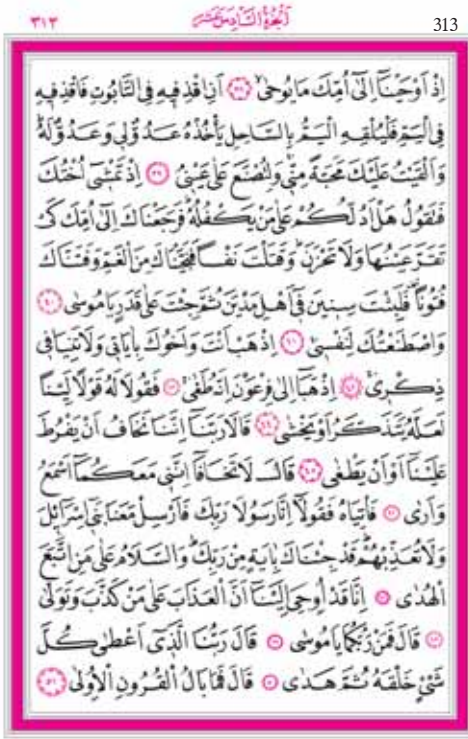 ٣١٣ اَلْجُزْءُ السَّادِسَ عَشَرَ 313
اِذْ اَوْحَيْنَٓا اِلٰٓى اُمِّكَ مَا يُوحٰىۙ ﴿٣٨﴾ اَنِ اقْذِفِيهِ فِي التَّابُوتِ فَاقْذِفِيهِ
فِي الْيَمِّ فَلْيُلْقِهِ الْيَمُّ بِالسَّاحِلِ يَأْخُذْهُ عَدُوٌّ لِي وَعَدُوٌّ لَهُۜ
وَاَلْقَيْتُ عَلَيْكَ مَحَبَّةً مِنِّي وَلِتُصْنَعَ عَلٰى عَيْنِيۢ ﴿٣٩﴾ اِذْ تَمْشِٓي اُخْتُكَ
فَتَقُولُ هَلْ اَدُلُّكُمْ عَلٰى مَنْ يَكْفُلُهُۜ فَرَجَعْنَاكَ اِلٰٓى اُمِّكَ كَيْ
تَقَرَّ عَيْنُهَا وَلَا تَحْزَنَۜ وَقَتَلْتَ نَفْسًا فَنَجَّيْنَاكَ مِنَ الْغَمِّ وَفَتَنَّاكَ
فُتُونًا۠ فَلَبِثْتَ سِنِينَ فِٓي اَهْلِ مَدْيَنَ ثُمَّ جِئْتَ عَلٰى قَدَرٍ يَا مُوسٰى ﴿٤٠﴾
وَاصْطَنَعْتُكَ لِنَفْسِيۚ ﴿٤١﴾ اِذْهَبْ اَنْتَ وَاَخُوكَ بِاٰيَاتِي وَلَا تَنِيَا فِي
ذِكْرِيۚ ﴿٤٢﴾ اِذْهَبَٓا اِلٰى فِرْعَوْنَ اِنَّهُ طَغٰىۚ ﴿٤٣﴾ فَقُولَا لَهُ قَوْلًا لَيِّنًا
لَعَلَّهُ يَتَذَكَّرُ اَوْ يَخْشٰى ﴿٤٤﴾ قَالَا رَبَّنَٓا اِنَّنَا نَخَافُ اَنْ يَفْرُطَ
عَلَيْنَٓا اَوْ اَنْ يَطْغٰى ﴿٤٥﴾ قَالَ لَا تَخَافَٓا اِنَّنِي مَعَكُمَٓا اَسْمَعُ
وَاَرٰى ﴿٤٦﴾ فَأْتِيَاهُ فَقُولَٓا اِنَّا رَسُولَا رَبِّكَ فَاَرْسِلْ مَعَنَا بَنِٓي اِسْرَٓائِلَ
وَلَا تُعَذِّبْهُمْۜ قَدْ جِئْنَاكَ بِاٰيَةٍ مِنْ رَبِّكَۜ وَالسَّلَامُ عَلٰى مَنِ اتَّبَعَ
الْهُدٰى ﴿٤٧﴾ اِنَّا قَدْ اُوحِيَ اِلَيْنَٓا اَنَّ الْعَذَابَ عَلٰى مَنْ كَذَّبَ وَتَوَلّٰى
﴿٤٨﴾ قَالَ فَمَنْ رَبُّكُمَا يَا مُوسٰى ﴿٤٩﴾ قَالَ رَبُّنَا الَّذِٓي اَعْطٰى كُلَّ
شَيْءٍ خَلْقَهُ ثُمَّ هَدٰى ﴿٥٠﴾ قَالَ فَمَا بَالُ الْقُرُونِ الْاُولٰى ﴿٥١﴾